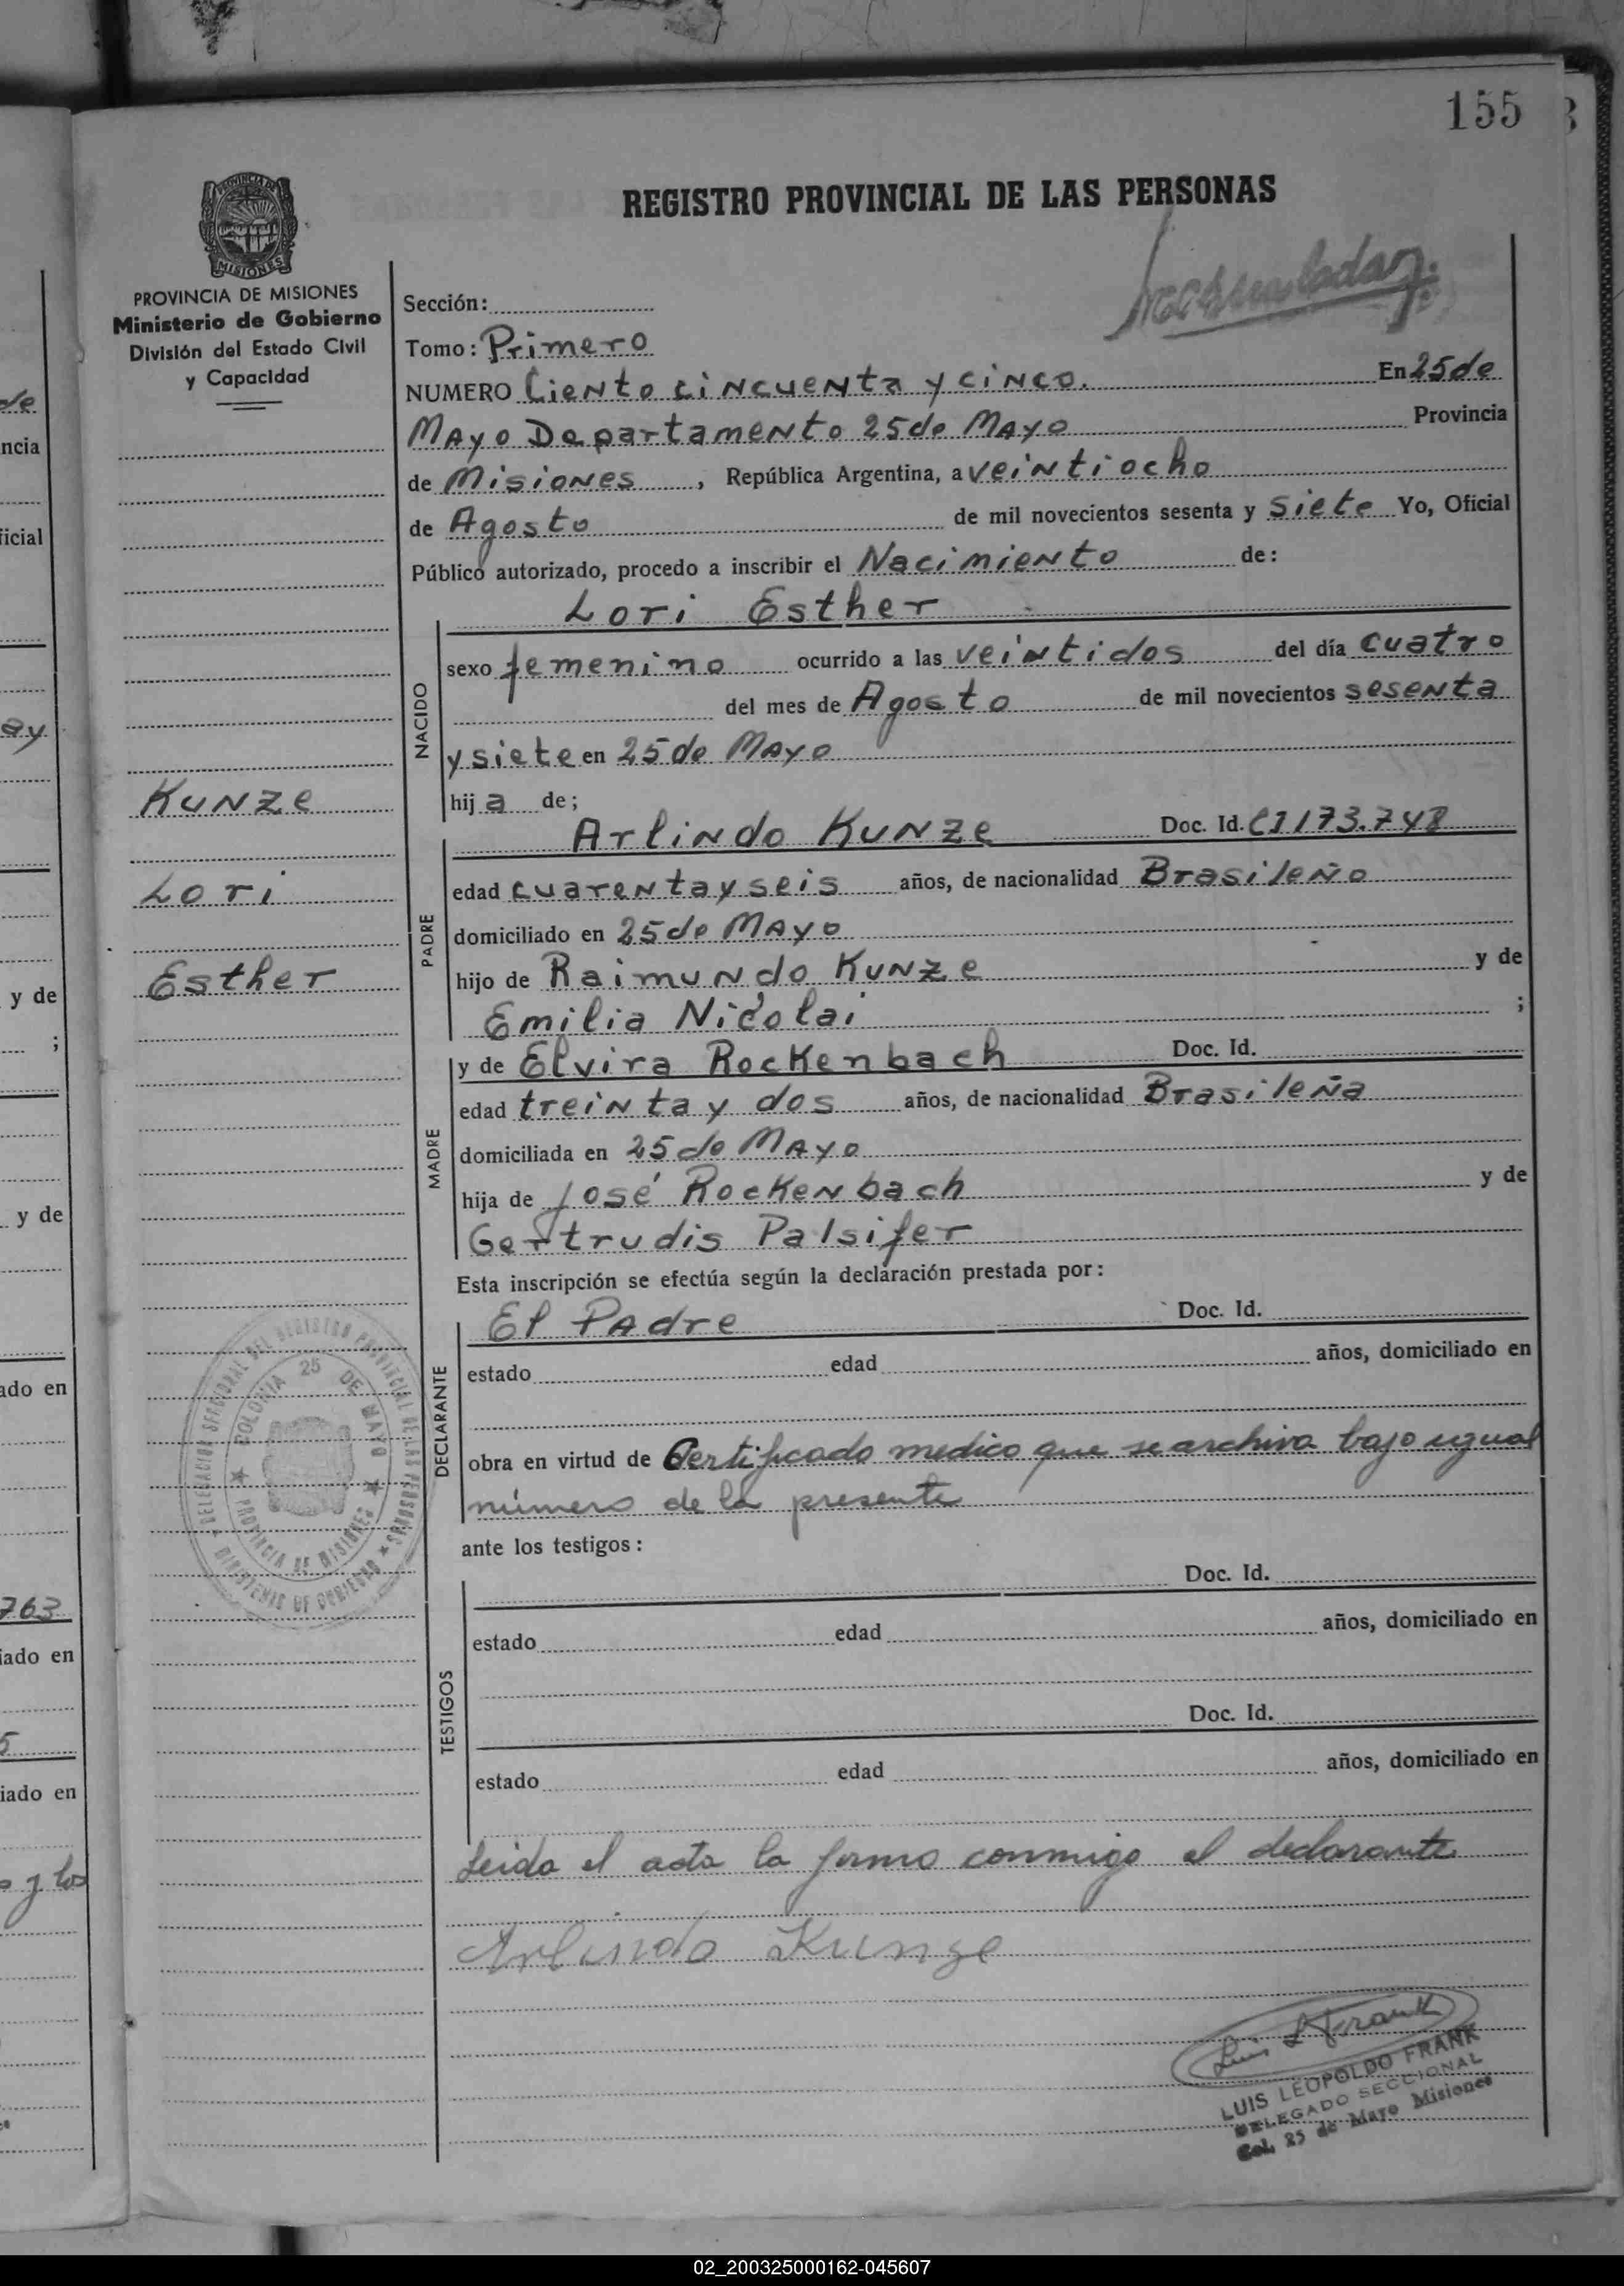 155
REGISTRO PROVINCIAL DE LAS PERSONAS
PROVINCIA DE MISIONES
PROVINCIA DE MISIONES
Ministerio de Gobierno
División del Estado Civil
y Capacidad
Sección:
Tomo: Primero
NUMERO Ciento cincuenta y cinco. En 25 de
Mayo Departamento 25 de Mayo Provincia
de Misiones, República Argentina, a veintiocho
de Agosto de mil novecientos sesenta y siete Yo, Oficial
Público autorizado, procedo a inscribir el Nacimiento de:
Lori Esther
NACIDO
sexo femenino ocurrido a las veintidos del día cuatro
del mes de Agosto de mil novecientos sesenta
y siete en 25 de Mayo
hija de;
Kunze
Lori
Esther
Arlindo Kunze Doc. Id. CI 173.748
PADRE
edad cuarenta y seis años, de nacionalidad Brasileño
domiciliado en 25 de Mayo
hijo de Raimundo Kunze y de
Emilia Nicolai ;
y de Elvira Rockenbach Doc. Id.
MADRE
edad treinta y dos años, de nacionalidad Brasileña
domiciliada en 25 de Mayo
hija de José Rockenbach y de
Gertrudis Palsifer
Esta inscripción se efectúa según la declaración prestada por:
El Padre Doc. Id.
DECLARANTE
estado edad años, domiciliado en
obra en virtud de Certificado medico que se archiva bajo igual
número de la presente
DELEGACION SECCIONAL DEL REGISTRO PROVINCIAL DE LAS PERSONAS
MINISTERIO DE GOBIERNO
COLONIA 25 DE MAYO
PROVINCIA DE MISIONES
ante los testigos:
TESTIGOS
Doc. Id.
estado edad años, domiciliado en
Doc. Id.
estado edad años, domiciliado en
Leida el acta la firma conmigo el declarante
Arlindo Kunze
Luis L Frank
LUIS LEOPOLDO FRANK
DELEGADO SECCIONAL
Col. 25 de Mayo Misiones
de
ncia
ficial
ay
y de
;
y de
ado en
763
iado en
5
iado en
y los
02_200325000162-045607